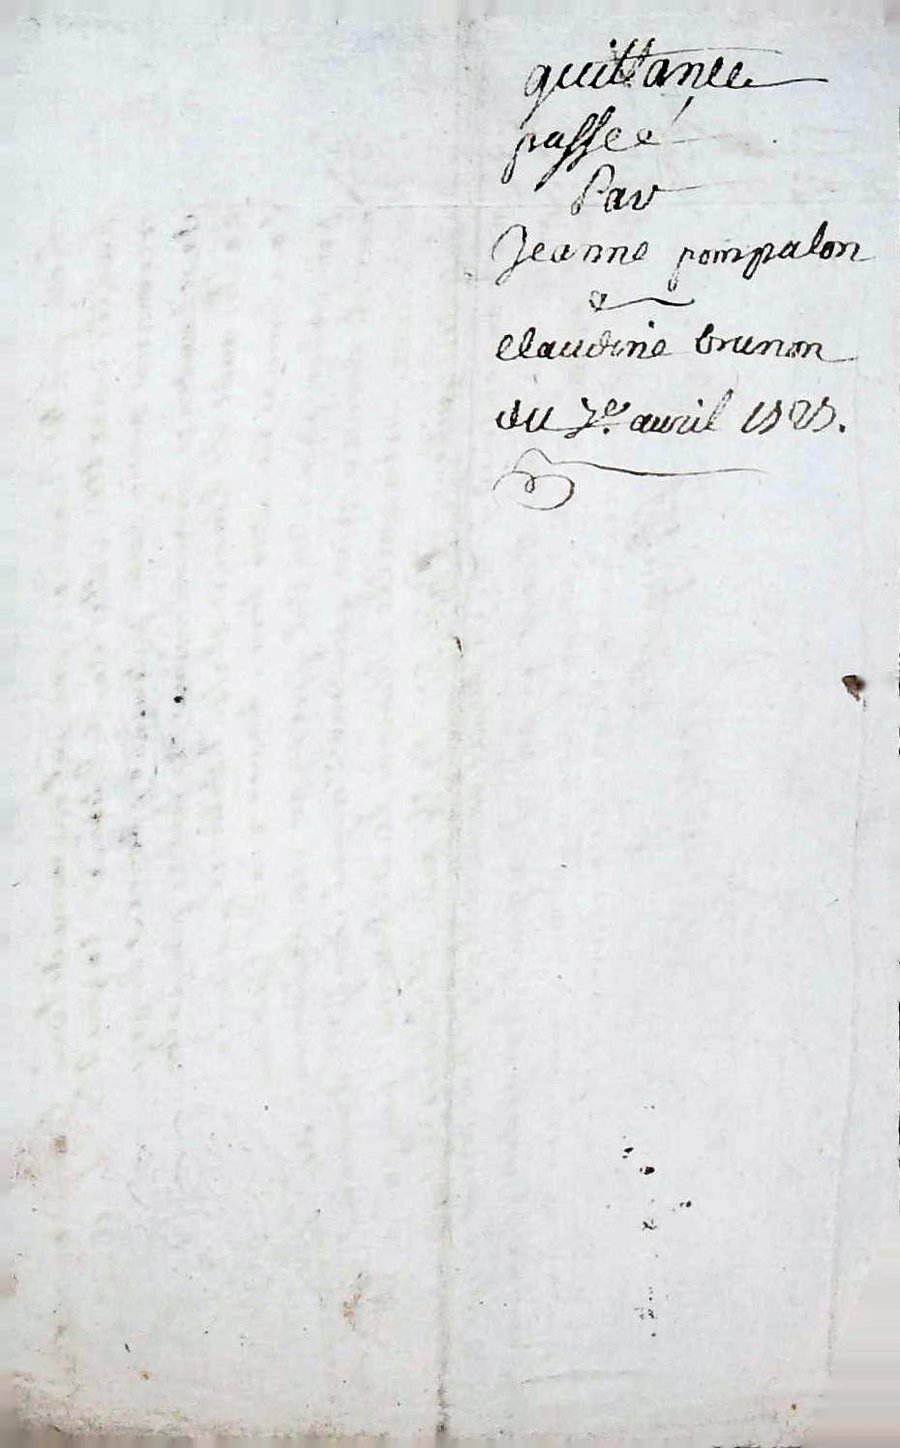 quittance
passée
Par
Jeanne pompalon
&
claudine brunon
du 7e. avril 1525.